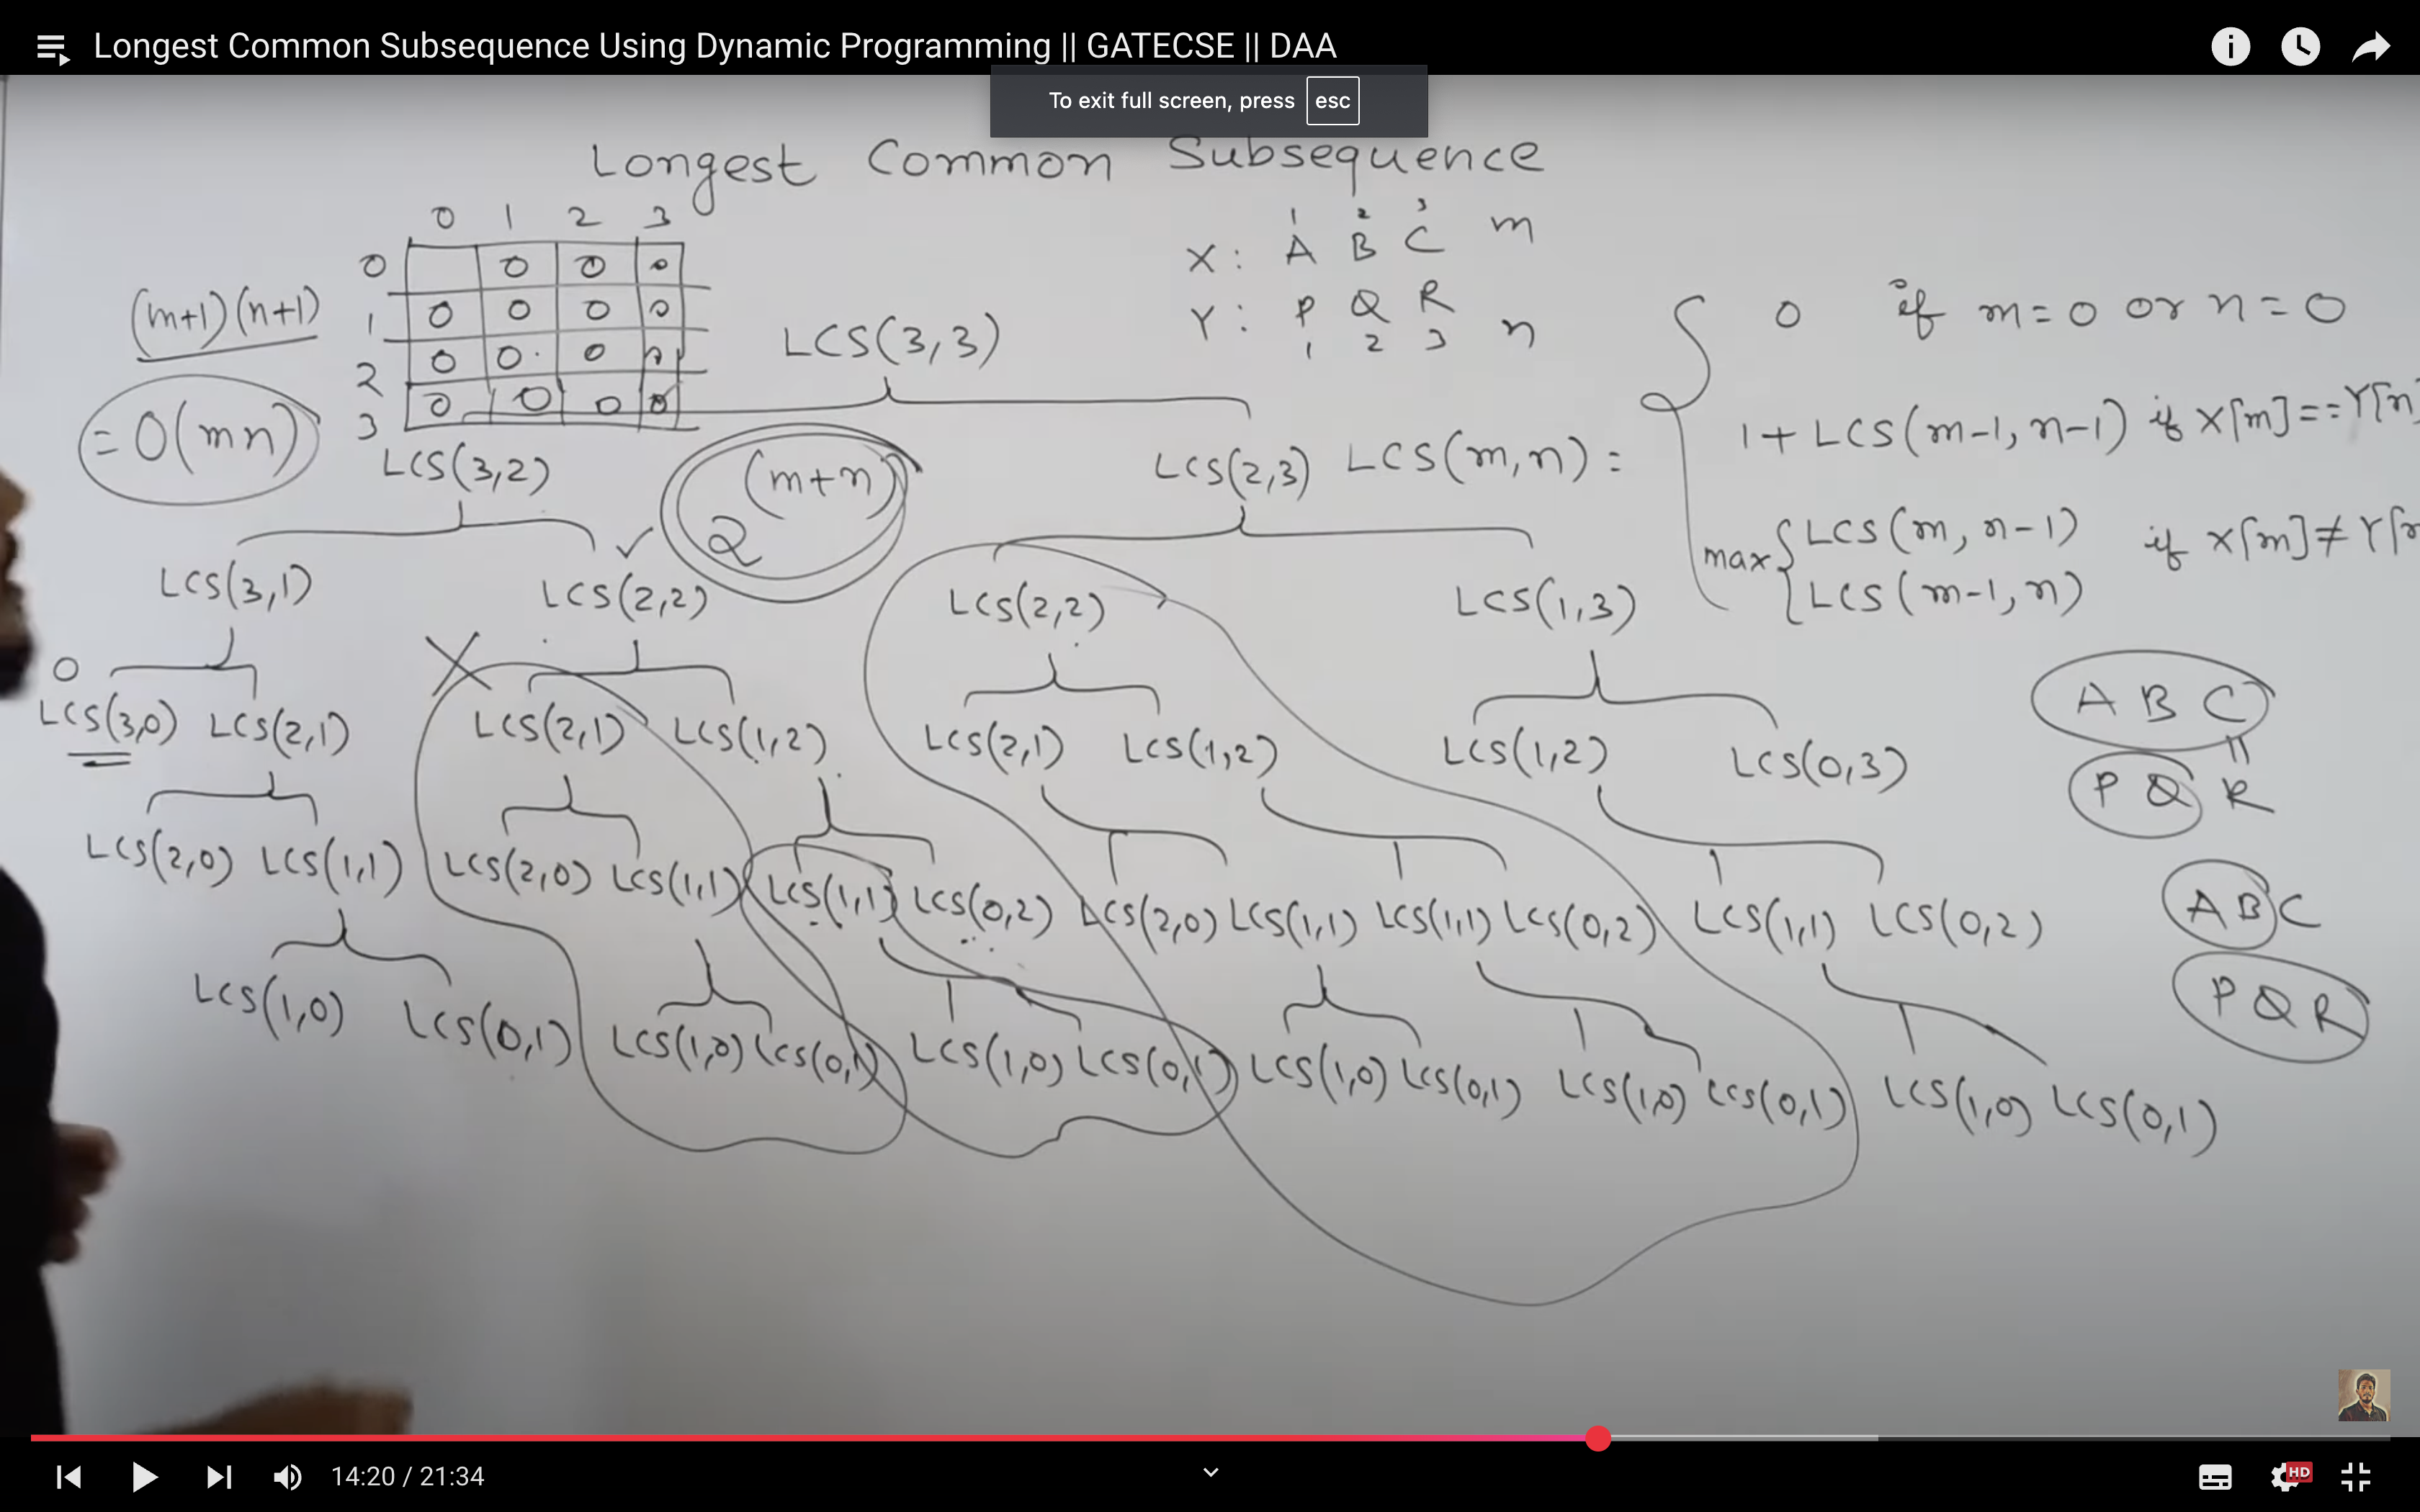 Longest Common Subsequence Using Dynamic Programming || GATECSE || DAA
To exit full screen, press esc
Longest Common Subsequence
0 1 2 3
0 0 0 0
1 0 0 0 0
2 0 0 0
3 0 0 0 0
(m+1)(n+1)
= O(mn)
1 2 3
X: A B C m
Y: P Q R n
1 2 3
LCS(m,n) =
0 if m=0 or n=0
1+LCS(m-1,n-1) if X[m]==Y[n]
max{LCS(m,n-1)
LCS(m-1,n)
if X[m]≠Y[
LCS(3,3)
2^(m+n)
LCS(3,2) LCS(2,3)
LCS(3,1) ✓ LCS(2,2) LCS(2,2) LCS(1,3)
0 X
LCS(3,0) LCS(2,1) LCS(2,1) LCS(1,2) LCS(2,1) LCS(1,2) LCS(1,2) LCS(0,3)
LCS(2,0) LCS(1,1) LCS(2,0) LCS(1,1) LCS(1,1) LCS(0,2) LCS(2,0) LCS(1,1) LCS(1,1) LCS(0,2) LCS(1,1) LCS(0,2)
LCS(1,0) LCS(0,1) LCS(1,0) LCS(0,1) LCS(1,0) LCS(0,1) LCS(1,0) LCS(0,1) LCS(1,0) LCS(0,1) LCS(1,0) LCS(0,1)
A B C
P Q R
A B C
P Q R
14:20 / 21:34
HD